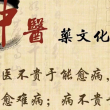 中醫 藥文化
医不贵于能愈病，
愈难病；病不贵